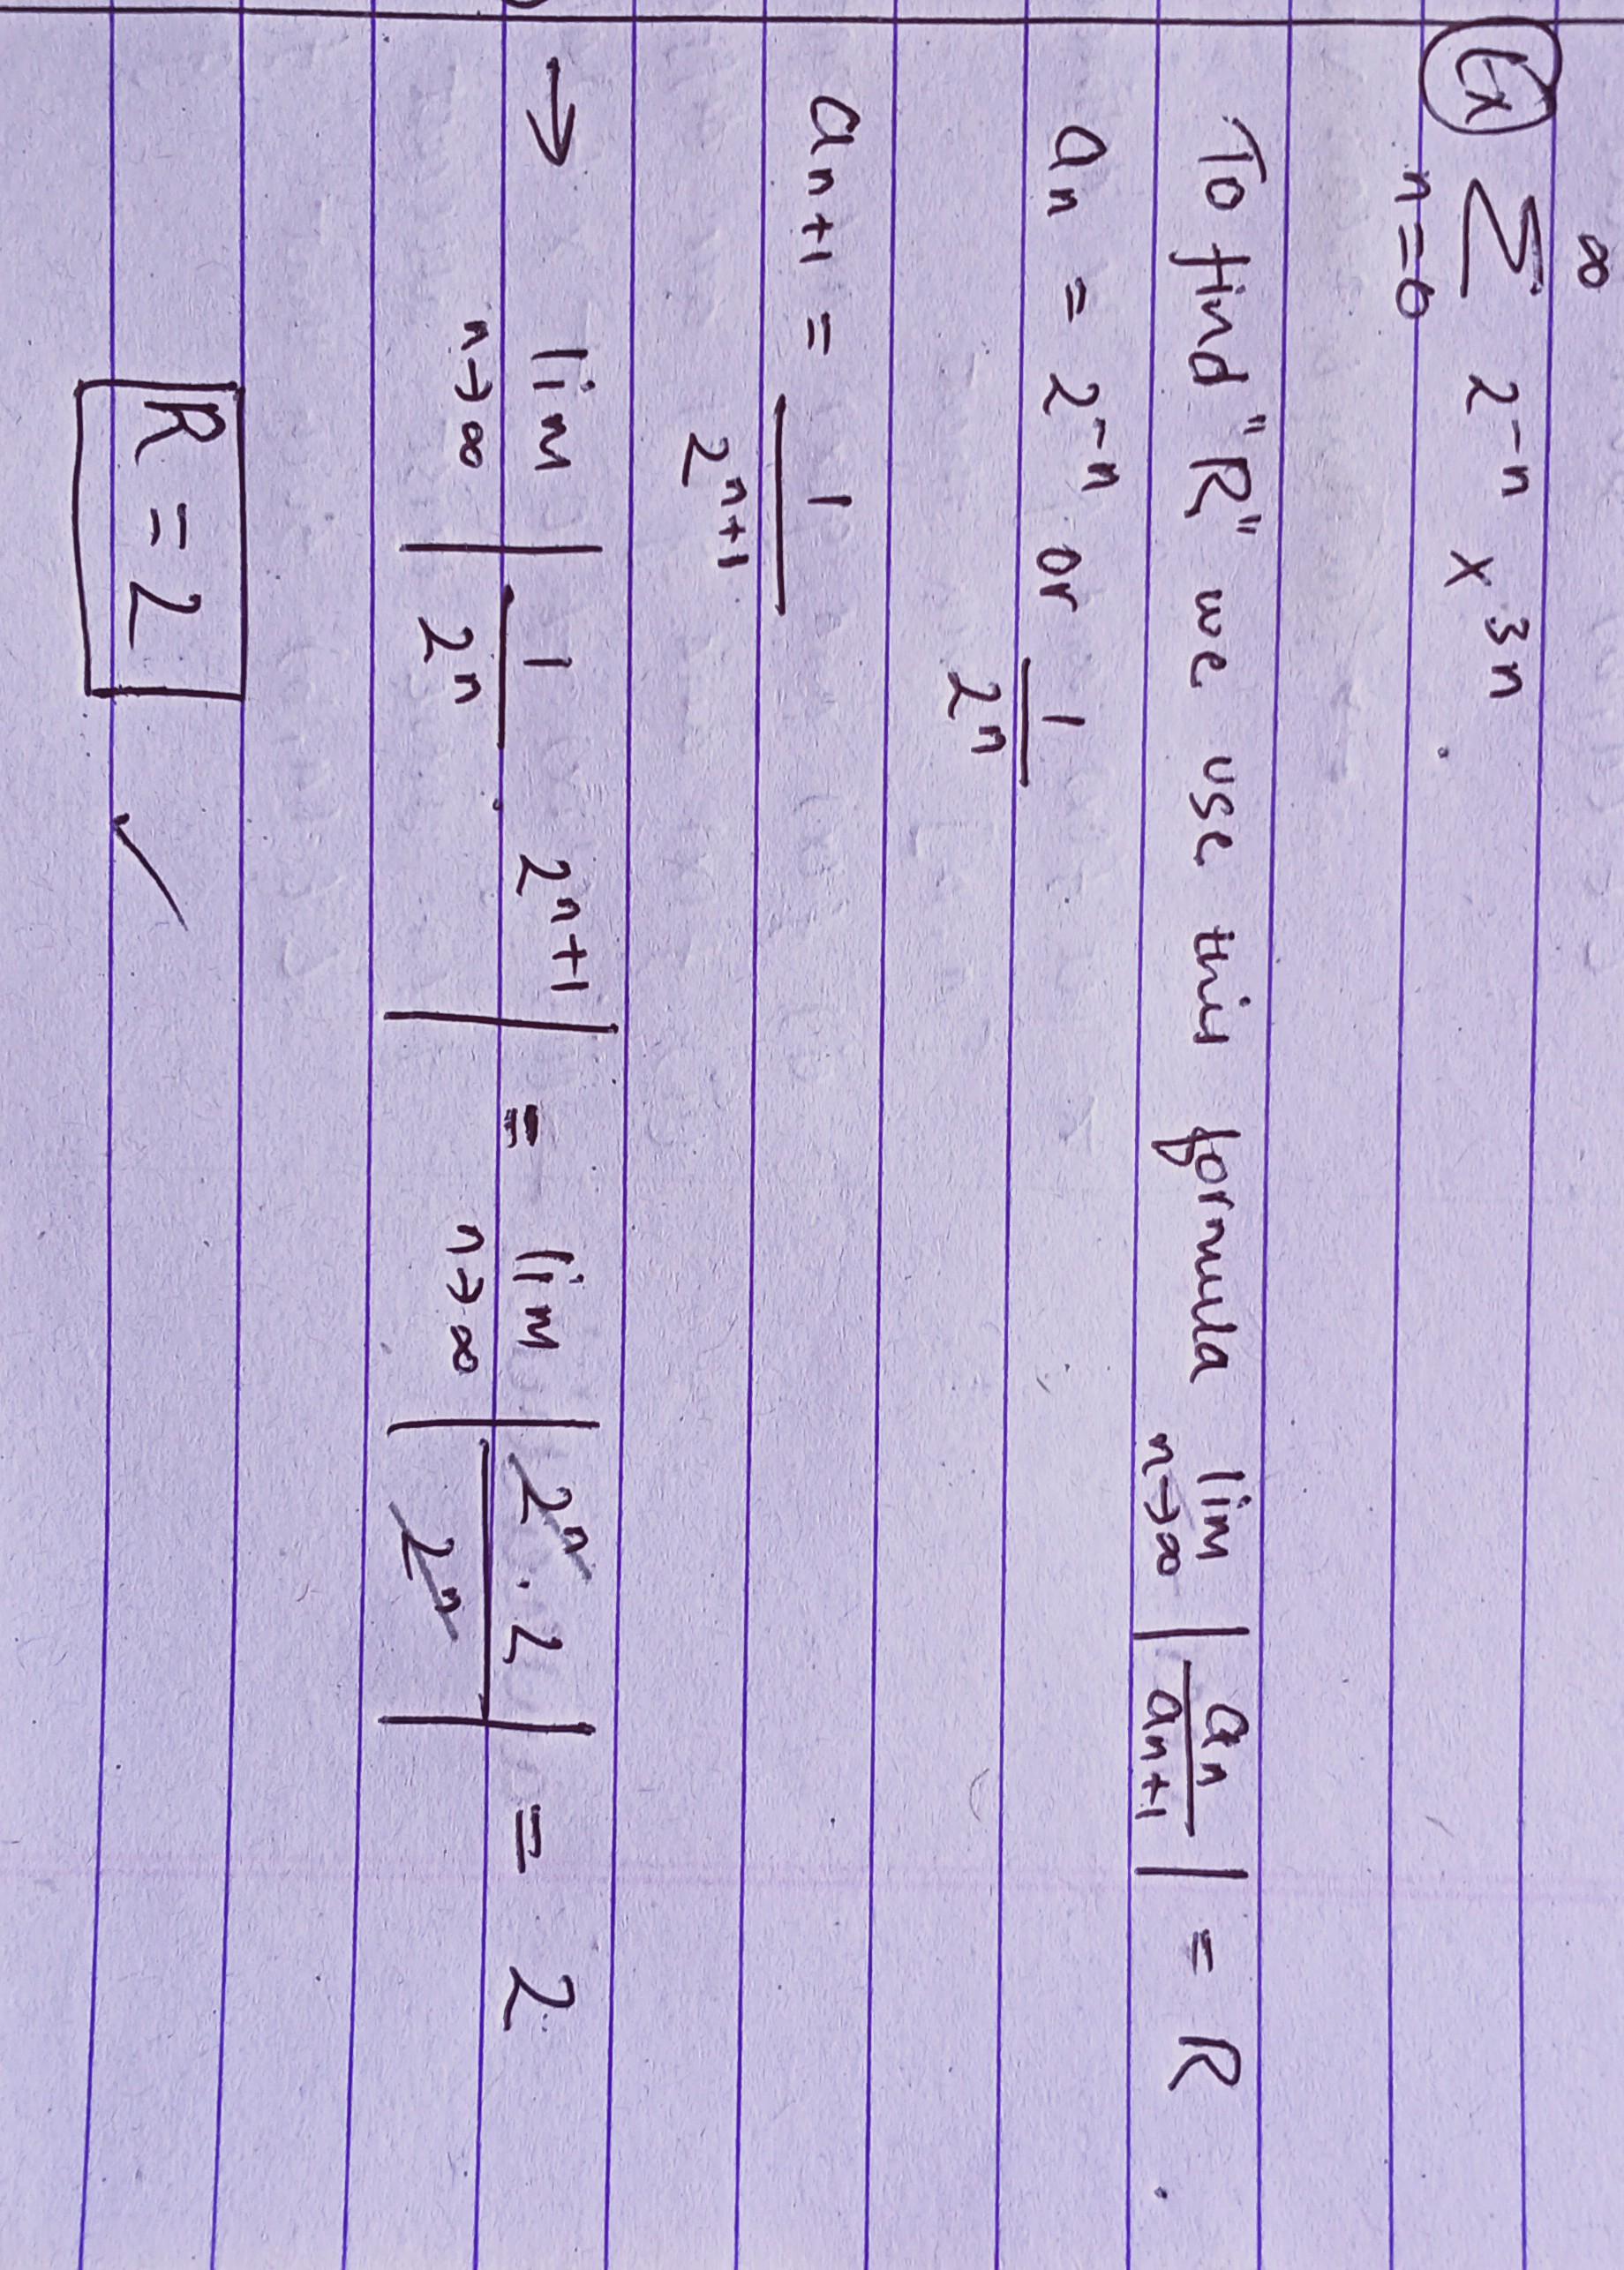 Ex ∞
∑ 2⁻ⁿ x³ⁿ
n=0
To find "R" we use this formula lim n→∞ | aₙ / aₙ₊₁ | = R
aₙ = 2⁻ⁿ or 1 / 2ⁿ
aₙ₊₁ = 1 / 2ⁿ⁺¹
→ lim n→∞ | 1 / 2ⁿ · 2ⁿ⁺¹ | = lim n→∞ | 2ⁿ · 2 / 2ⁿ | = 2
R = 2 ✓